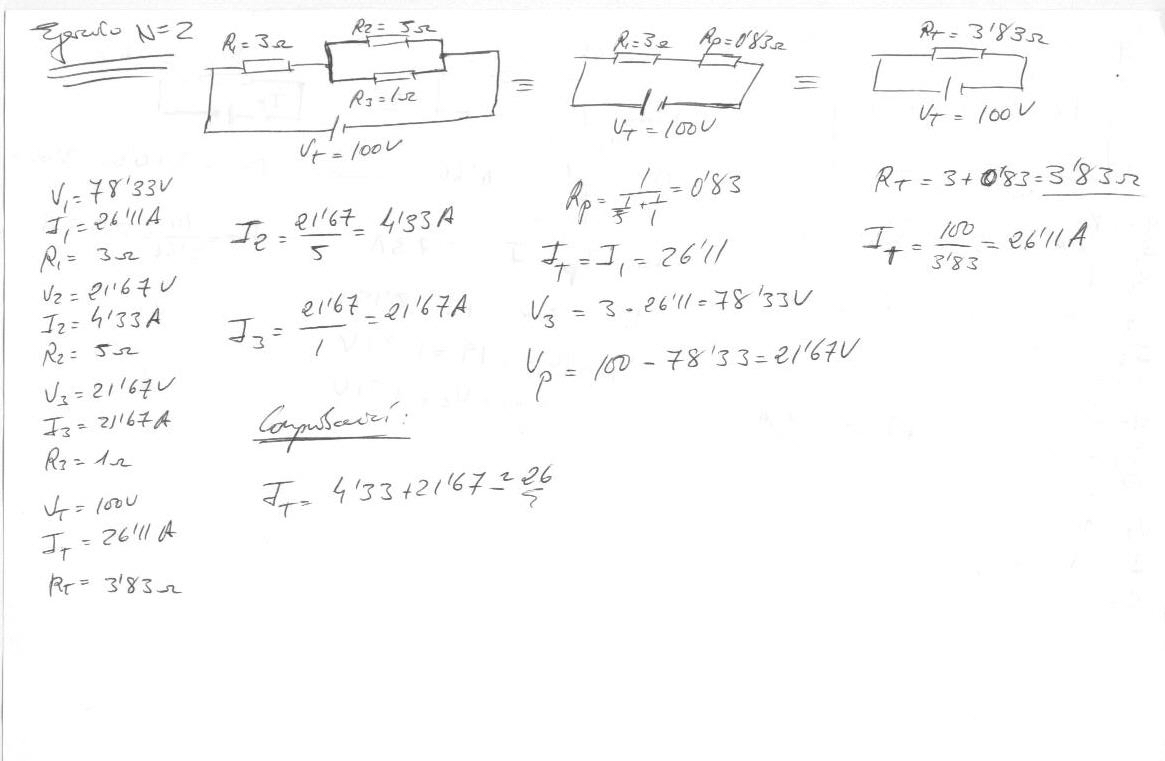 Ejercicio N=2
R1= 3Ω
R2= 5Ω
R3=1Ω
VT = 100V
≡
R1=3Ω
Rp=0'83Ω
VT = 100V
≡
RT = 3'83Ω
VT = 100V
V1= 78'33V
I1= 26'11A
R1= 3Ω
V2= 21'67V
I2= 4'33A
R2= 5Ω
V3= 21'67V
I3= 21'67A
R3= 1Ω
VT = 100V
IT = 26'11A
RT= 3'83Ω
I2 = 21'67/5 = 4'33A
I3 = 21'67/1 = 21'67A
Comprobación:
IT= 4'33+21'67 = 26
Rp= 1/(1/5+1/1) = 0'83
IT= I1= 26'11
V3 = 3 · 26'11= 78'33V
Vp = 100 - 78'33=21'67V
RT = 3+0'83=3'83Ω
IT = 100/3'83 = 26'11A